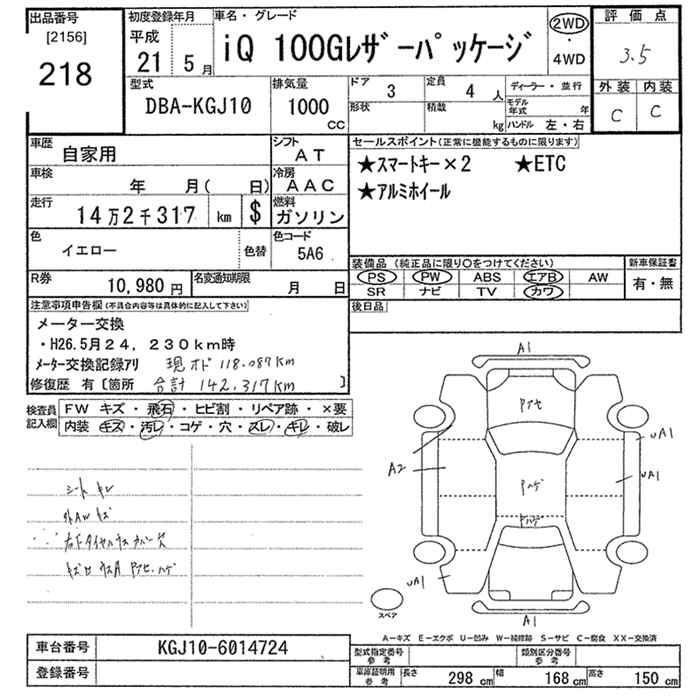 出品番号
[2156]
218
初度登録年月
平成
21 5月
車名・グレード
iQ 100Gレザーパッケージ
2WD
・
4WD
評価点
3.5
外装 内装
C C
型式
DBA-KGJ10
排気量
1000
CC
ドア
3
定員
4 人
形状
積載
kg
ディーラー・並行
モデル年式 年
ハンドル 左・右
車歴
自家用
シフト
AT
車検
年 月( 日)
冷房
AAC
走行
14万2千317 km $
燃料
ガソリン
色
イエロー
色替
色コード
5A6
R券
10,980円
名変通知期限
月 日
セールスポイント(正常に機能するものに限ります)
★スマートキー×2 ★ETC
★アルミホイール
装備品(純正品に限り○をつけてください)
新車保証書
PS PW ABS エアB AW
SR ナビ TV カワ
有・無
後日品
注意事項申告欄(不具合内容等は具体的に記入して下さい)
メーター交換
・H26.5月24,230km時
メーター交換記録アリ 現オド 118.087Km
修復歴 有〔箇所 合計 142.317Km 〕
検査員記入欄
FW キズ・飛石・ヒビ割・リペア跡・×要
内装 キズ・汚レ・コゲ・穴・スレ・キレ・破レ
シートキレ
外AWキズ
A1
Pアセ
A2
UA1
UA1
Pハゲ
Pハゲ
UA1
A1
スペア
A-キズ E-エクボ U-凹み W-補修跡 S-サビ C-腐食 XX-交換済
車台番号
KGJ10-6014724
登録番号
型式指定番号
参考
類別区分番号
参考
車庫証明用
参考
長さ 298 cm 幅 168 cm 高さ 150 cm